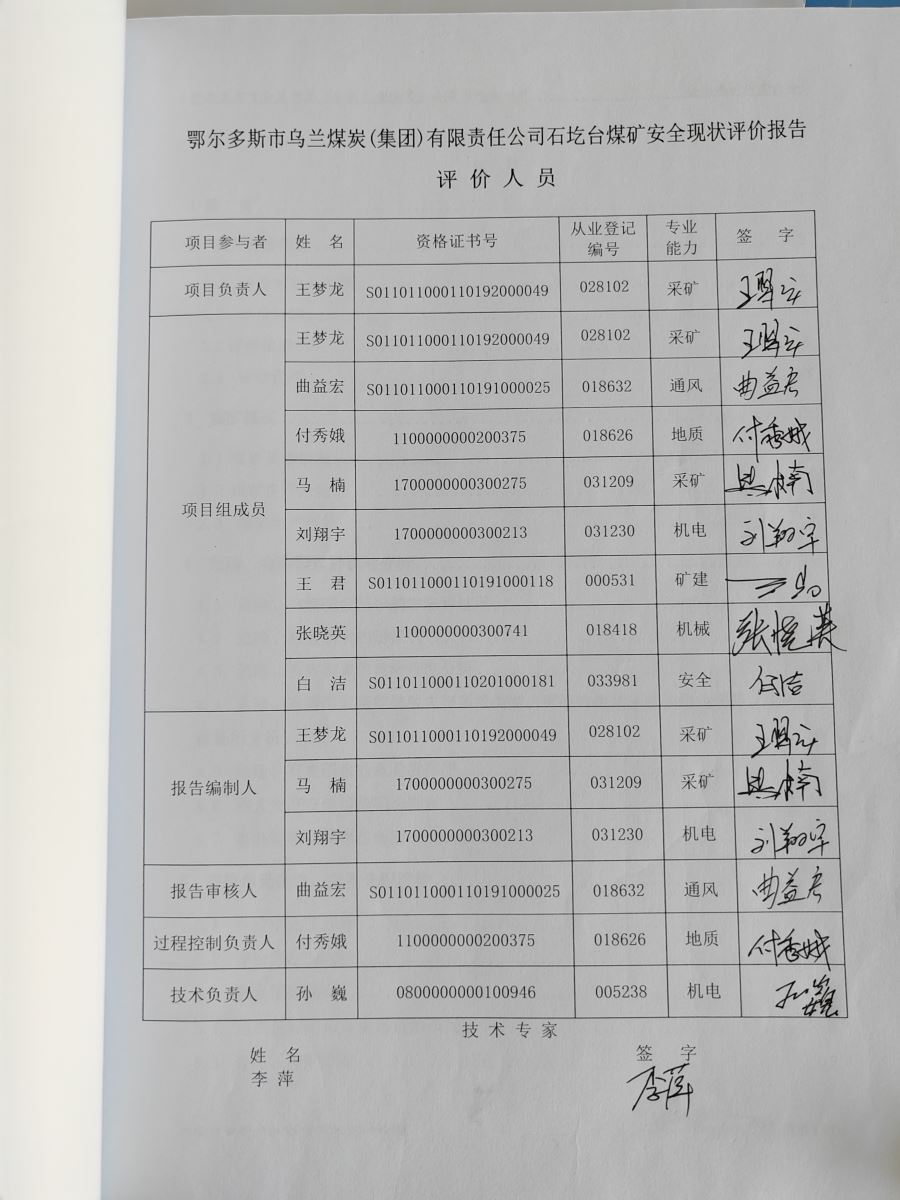 鄂尔多斯市乌兰煤炭(集团)有限责任公司石圪台煤矿安全现状评价报告
评价人员
项目参与者 姓 名 资格证书号 从业登记编号 专业能力 签 字
项目负责人 王梦龙 S011011000110192000049 028102 采矿 王梦龙
项目组成员 王梦龙 S011011000110192000049 028102 采矿 王梦龙
曲益宏 S011011000110191000025 018632 通风 曲益宏
付秀娥 1100000000200375 018626 地质 付秀娥
马 楠 1700000000300275 031209 采矿 马楠
刘翔宇 1700000000300213 031230 机电 刘翔宇
王 君 S011011000110191000118 000531 矿建 王君
张晓英 1100000000300741 018418 机械 张晓英
白 洁 S011011000110201000181 033981 安全 白洁
报告编制人 王梦龙 S011011000110192000049 028102 采矿 王梦龙
马 楠 1700000000300275 031209 采矿 马楠
刘翔宇 1700000000300213 031230 机电 刘翔宇
报告审核人 曲益宏 S011011000110191000025 018632 通风 曲益宏
过程控制负责人 付秀娥 1100000000200375 018626 地质 付秀娥
技术负责人 孙 巍 0800000000100946 005238 机电 孙巍
技术专家
姓 名 签 字
李 萍 李萍